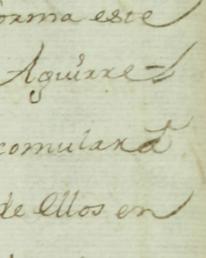 orma este
Aguirre
comulara
de ellos en